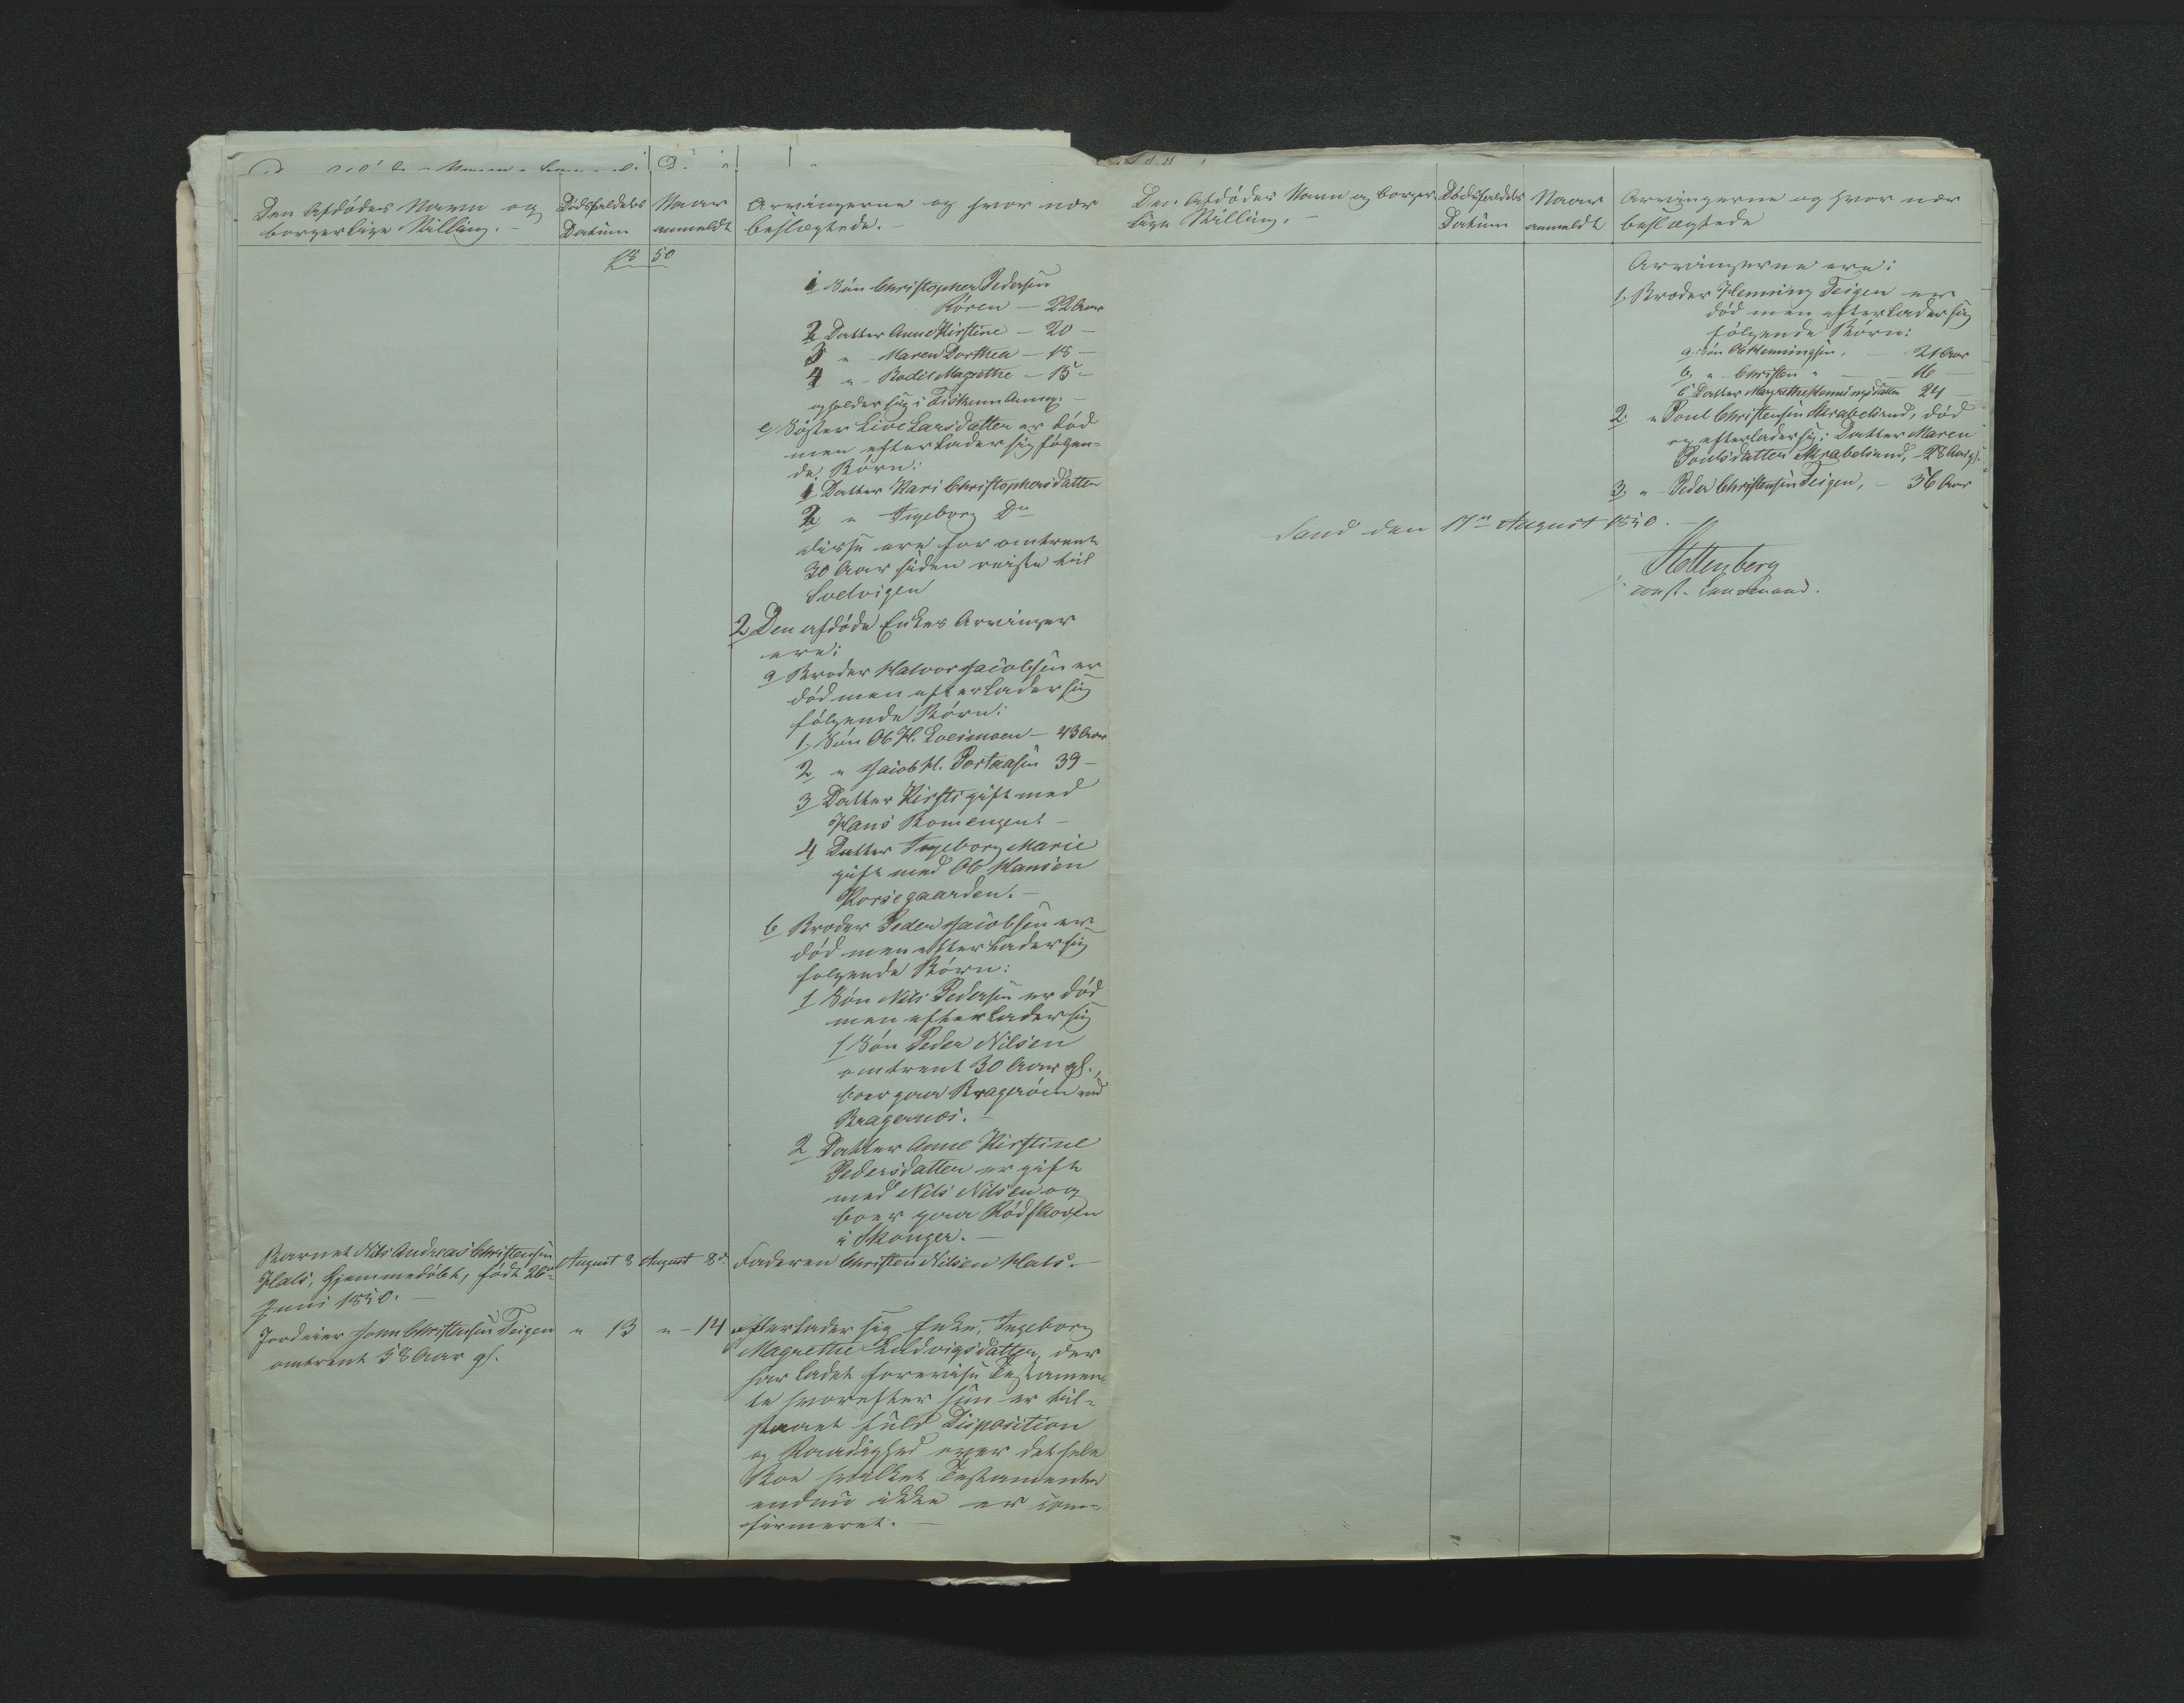 Den Afdödes Navn og
borgerlige Stilling. –
Dödsfaldets
Datum
Naar
anmeldt
Arvingerne og hvor nær
beslægtede. –
1850
1 Sön Christopher Pedersen
Kören – 22 Aar
2 Datter Anne Kirstine – 20 –
3 " – Maren Dorthea – 18 –
4 " – Bodil Magrethe – 15 –
opholder sig i Fiskum Annex. –
e, Söster Live Larsdatter er död
men efterlader sig följen-
de Börn:
1 Datter Kari Christophersdatter
2 " Ingeborg Do
disse ere for omtrent
30 Aar siden reiste til
Svelvigen
2 Den afdöde Enkes Arvinger
ere:
a Broder Halvor Jacobsen er
död men efterlader sig
fölgende Börn:
1, Sön Ole H. Loesmoen – 43 Aar
2, " Jacob H. 39 –
3 Datter Kirsti gift med
Hans Komengen. –
4 Datter Ingeborg Marie
gift med Ole Hansen
Korsegaarden. –
b Broder Peder Jacobsen er
död men efterlader sig
fölgende Börn:
1 Sön Nils Pedersen er död
men efterlader sig
1 Sön Peder Nilsen
omtrent 30 Aar gl.,
boer paa Brageröen ved
Bragernæs. –
2 Datter Anne Kirstine
Pedersdatter er gift
med Nils Nilsen og
boer paa Rödskoven
i Skouger. –
Barnet Nils Andreas Christensen
Hals, hjemmedöbt, födt 26de
Juni 1850. –
August 8
August 8de
Faderen Christen Nilsen Hals. –
Jordeier John Christensen Teigen
omtrent 58 Aar gl.
" 13
" – 14
efterlader sig Enke, Ingeborg
Magrethe Ludvigsdatter, der
har ladet forevise Testamen-
te hvorefter hun er til-
staaet fuld Disposition
og Raadighed over det hele
Boe hvilket Testamente
endnu ikke er con-
firmeret. –
Den Afdödes Navn og borger-
lige Stilling. –
Dödsfaldets
Datum
Naar
anmeldt
Arvingerne og hvor nær
beslægtede
Arvingerne ere:
1, Broder Henning Teigen er
död men efterlader sig
fölgende Börn:
a, Sön Ole Henningsen, – 21 Aar
b, " – Christen " – 16 –
c Datter Magrethe Henningsdatter 24 –
2, " Poul Christensen Skrabelsrud, död
og efterlader sig: Datter Maren
Poulsdatter Skrabelsrud, – 28 Aar gl.
3, " – Peder Christensen Teigen, – 56 Aar
Sand den 17de August 1850. –
Stoltenberg
const. Lensmand.